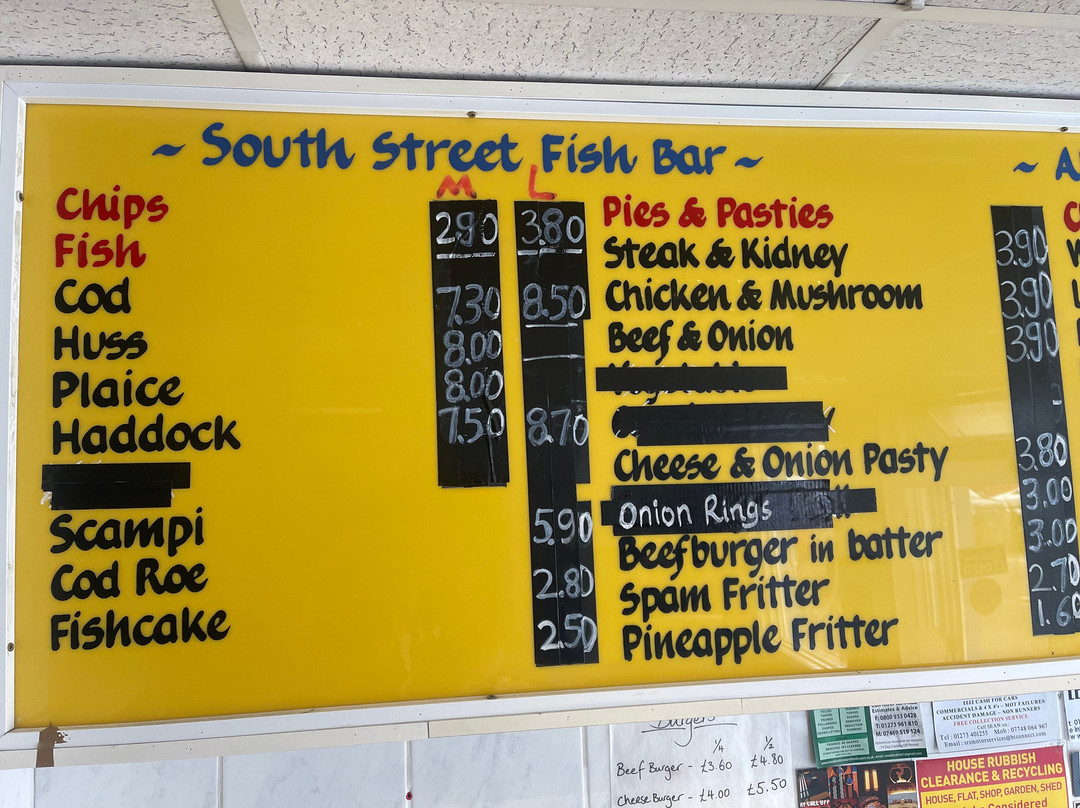 ~ South Street Fish Bar ~
M L
Chips 2.90 3.80
Fish
Cod 7.30 8.50
Huss 8.00
Plaice 8.00
Haddock 7.50 8.70
Scampi 5.90
Cod Roe 2.80
Fishcake 2.50
Pies & Pasties
Steak & Kidney 3.90
Chicken & Mushroom 3.90
Beef & Onion 3.90
Cheese & Onion Pasty 3.80
Onion Rings 3.00
Beefburger in batter 3.00
Spam Fritter 2.70
Pineapple Fritter 1.60
~ A
Burgers
1/4 1/2
Beef Burger - £3.60 £4.80
Cheese Burger - £4.00 £5.50
Estimates & Advice
F: 0800 933 0428
T: 01273 961 810
M: 07469 519 124
CASH FOR CARS
COMMERCIALS & 4 X 4's - MOT FAILURES
ACCIDENT DAMAGE - NON RUNNERS
FREE COLLECTION SERVICE
Call SEAN on:
Tel: 01273 401255 Mob: 07748 064 967
Email: srsmotorservices@btconnect.com
HOUSE RUBBISH
CLEARANCE & RECYCLING
HOUSE, FLAT, SHOP, GARDEN, SHED
Considered